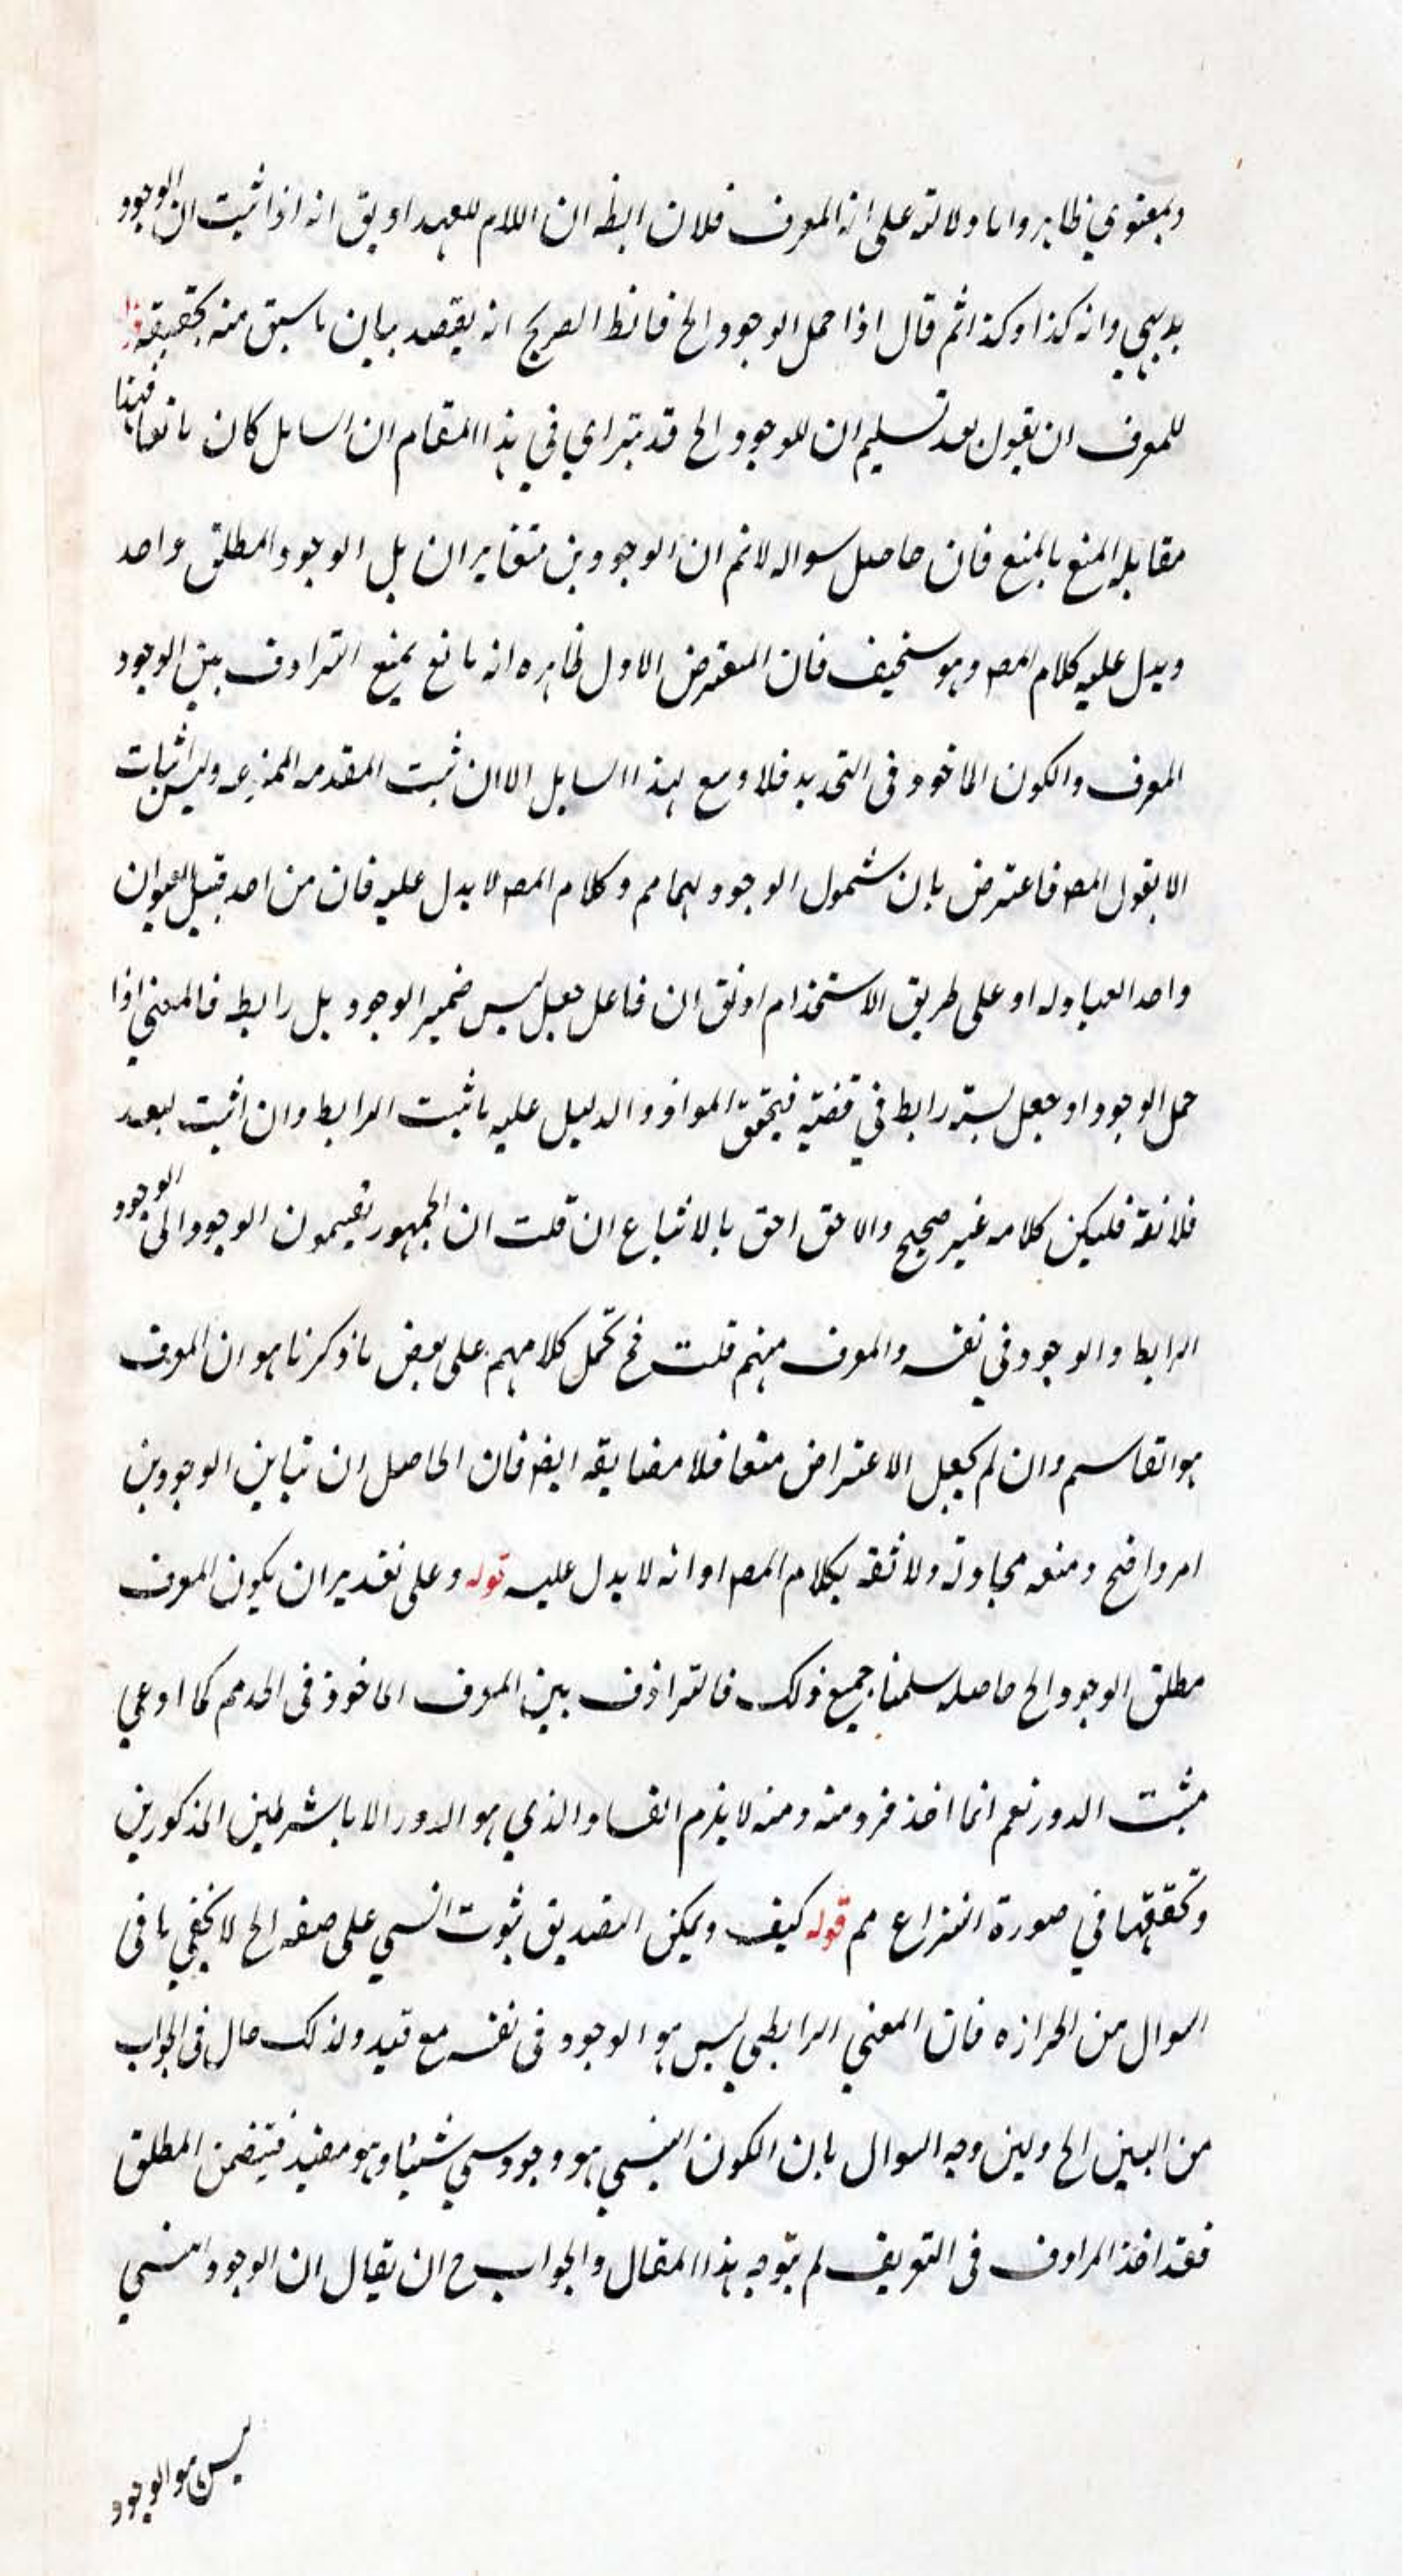 ومعنوي ظاهر واما دلالته على انه المعرف فلان الظ ان اللام للعهد او يق انه اذا ثبت ان الوجود
بديهي وانه كذا وكذا ثم قال اذا حمل الوجود الخ فالظ الصريح انه يقصد بيان ما سبق منه تحقيقه قوله
للمعرف ان يقول بعد تسليم ان للوجود الخ قد يتراي في هذا المقام ان السايل كان مانعا فهذا
مقابلة المنع بالمنع فان حاصل سواله لانم ان الوجودين متغايران بل الوجود المطلق واحد
ويدل عليه كلام المصه وهو سخيف فان المعترض الاول ظاهره انه مانع يمنع الترادف بين الوجود
المعرف والكون الماخوذ فى التحديد فلا وسع لهذا السايل الا ان يثبت المقدمه الممنوعه وليس اثبات
الا بقول المصه فاعترض بان شمول الوجود لهما مم وكلام المصه لا يدل عليه فان من احد قبيل العنوان
واحد او على طريق الاستخدام او نق ان فاعل جعل ليس ضمير الوجود بل رابط فالمعني اذا
حمل الوجود او جعل نسبته رابط في قضيه فيتحقق المواد والدليل عليه ما ثبت الرابط وان اثبت بعد
فلا نقه فليكن كلامه غير صحيح والاحق احق بالاتباع ان قلت ان الجمهور يقسمون الوجود الى الوجود
الرابط والوجود في نفسه والمعرف منهم قلت فح تحمل كلامهم على بعض ما ذكرنا هو ان المعرف
هو القاسم وان لم يجعل الاعتراض منعا فلا مضايقه ايضه فان الحاصل ان تباين الوجودين
امر واضح ومنعه مجادله ولا ثقه بكلام المصه او انه لا يدل عليه قوله وعلى تقدير ان يكون المعرف
مطلق الوجود الخ حاصله سلمنا جميع ذلك فالترادف بين المعرف الماخوذ فى الحد مم كما ادعي
مثبت الدور نعم انما اخذ فرد منه ومنه لا يلزم الفساد الذي هو الدور الا بالشرطين المذكورين
وتحققهما في صورة النزاع مم قوله كيف ويمكن التصديق بثبوت الشي على صفه الخ لا يخفي ما فى
السوال من الحزازه فان المعني الرابطي ليس هو الوجود فى نفسه مع قيد ولذلك مال فى الجواب
من البين الخ ولين وجه السوال بان الكون النسبي هو وجود شي شيئا وهو مقيد فيتضمن المطلق
فقد اخذ المرادف فى التعريف لم يتوجه هذا المقال والجواب ح ان يقال ان الوجود النسبي
ليس هو الوجود